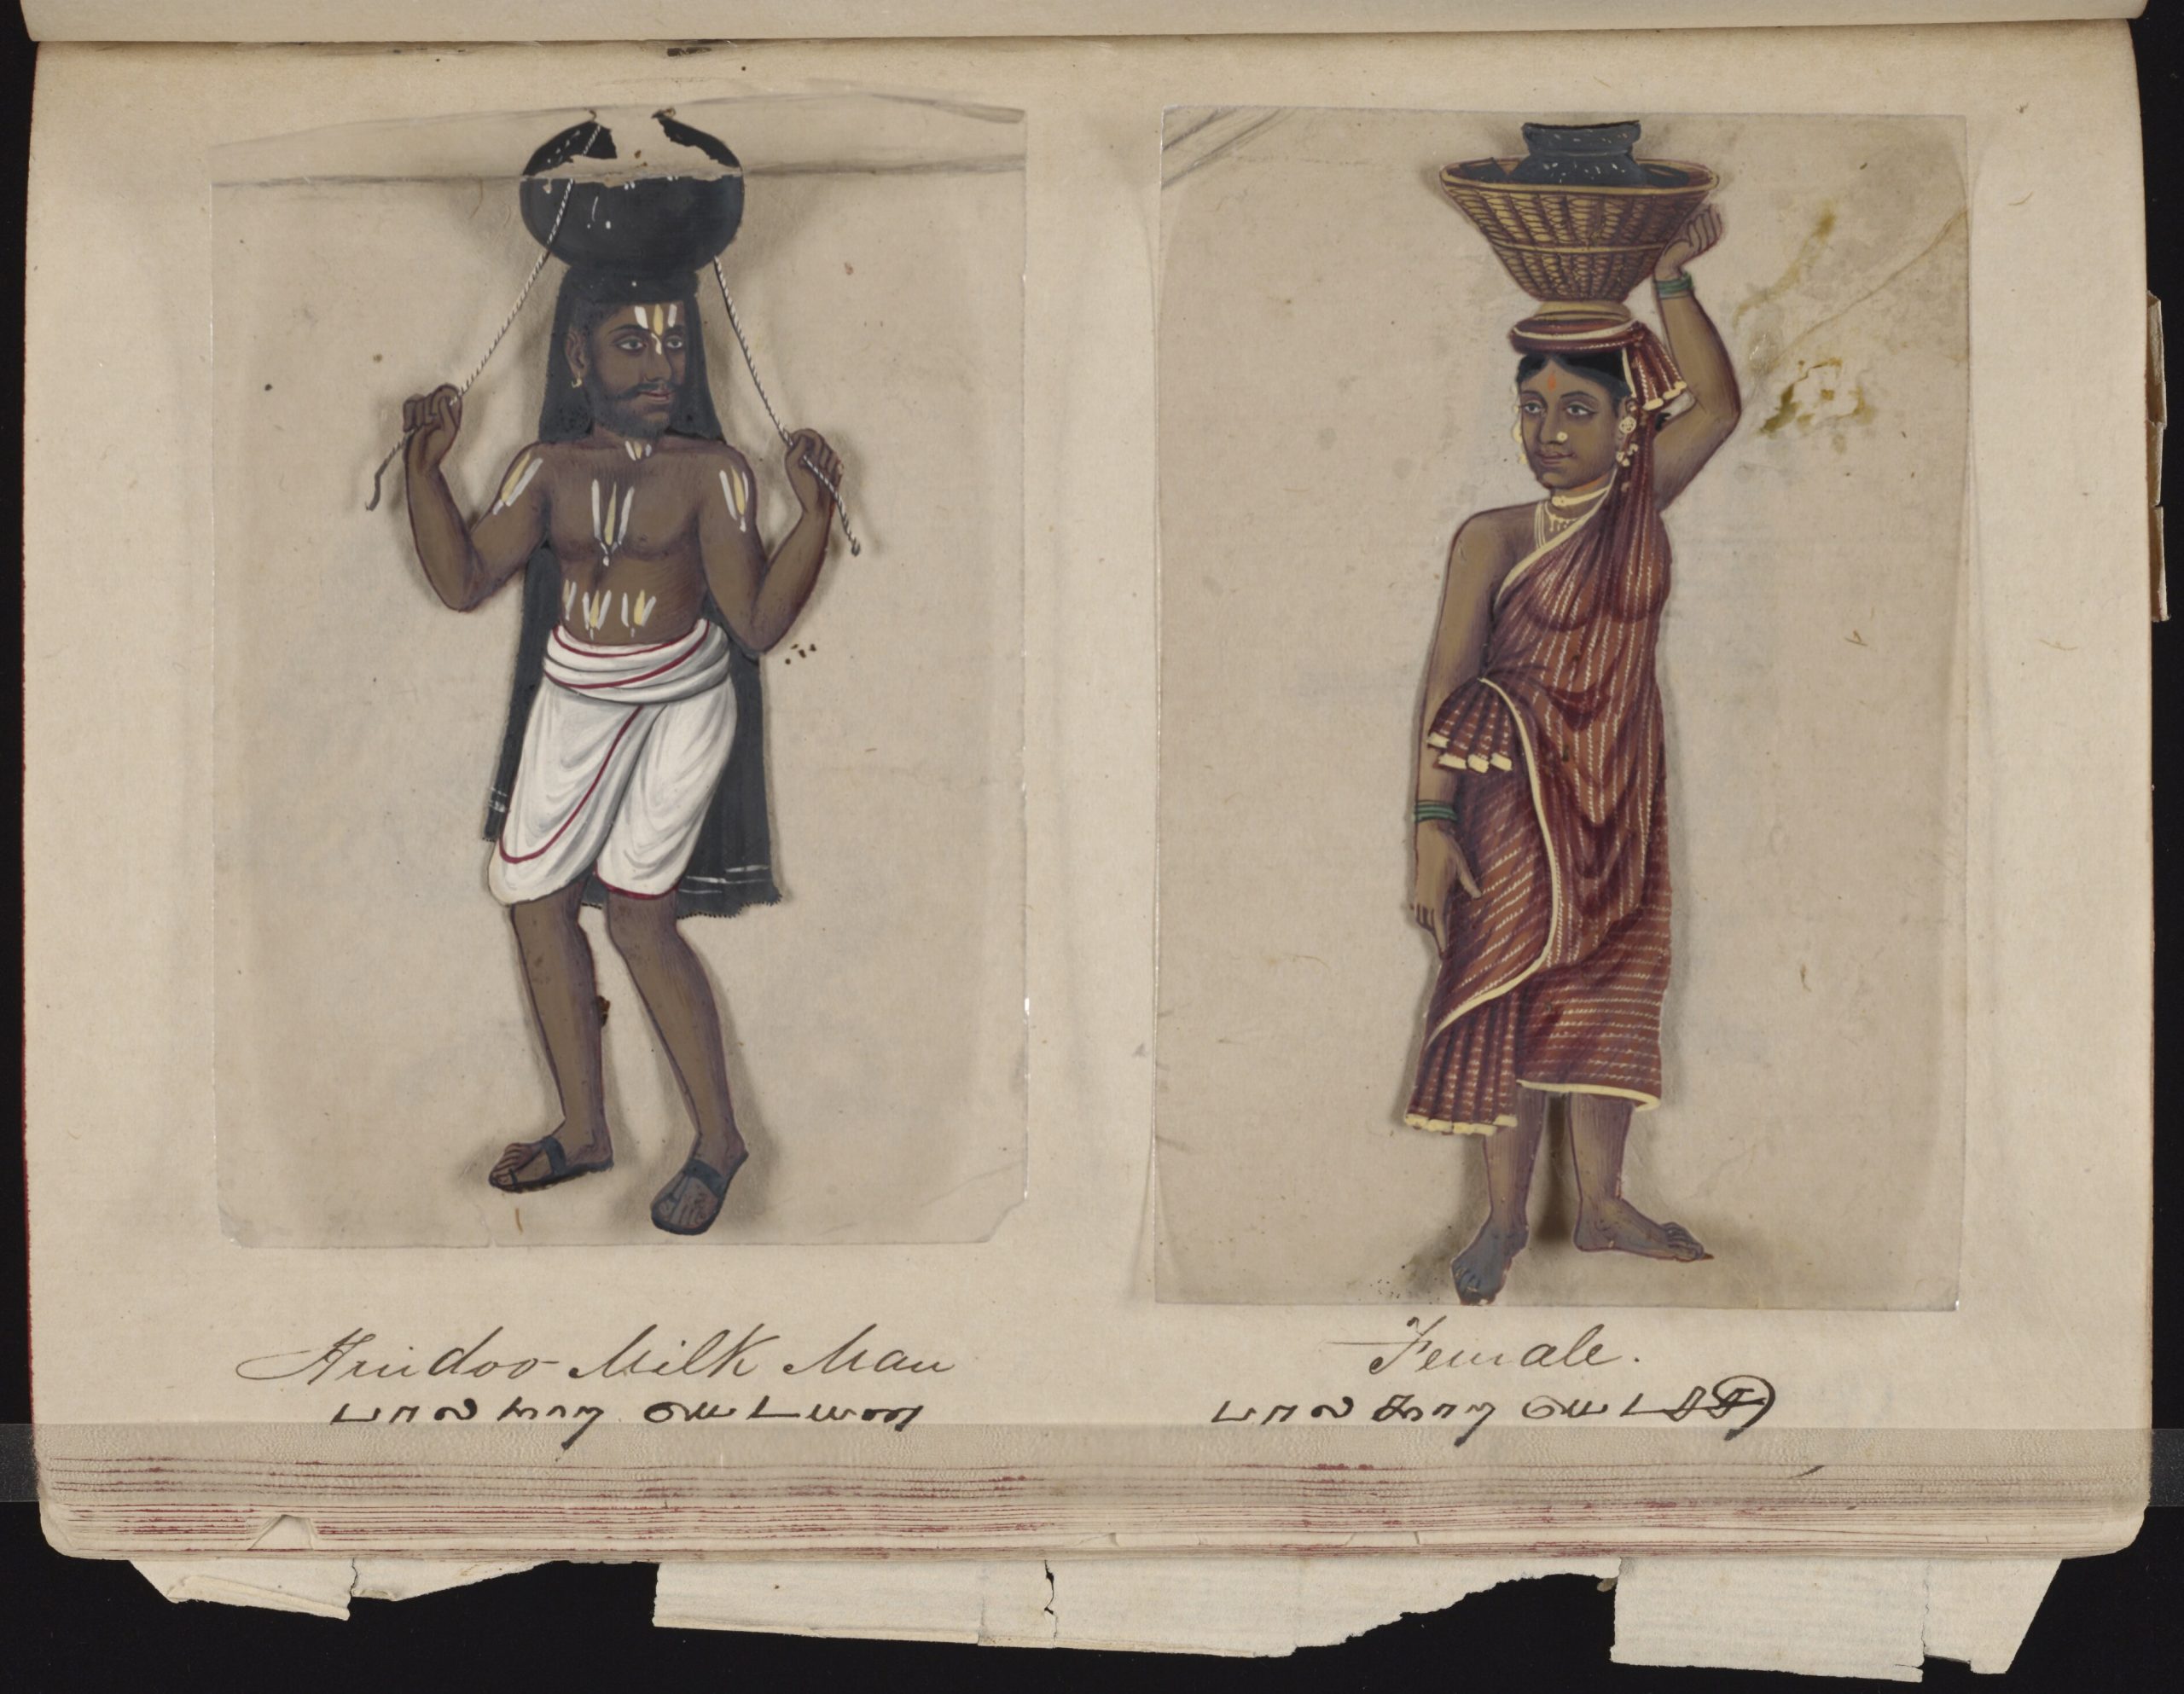 Hindoo Milk Man
பால காற யிடயன
Female.
பால காற யிடச்சி